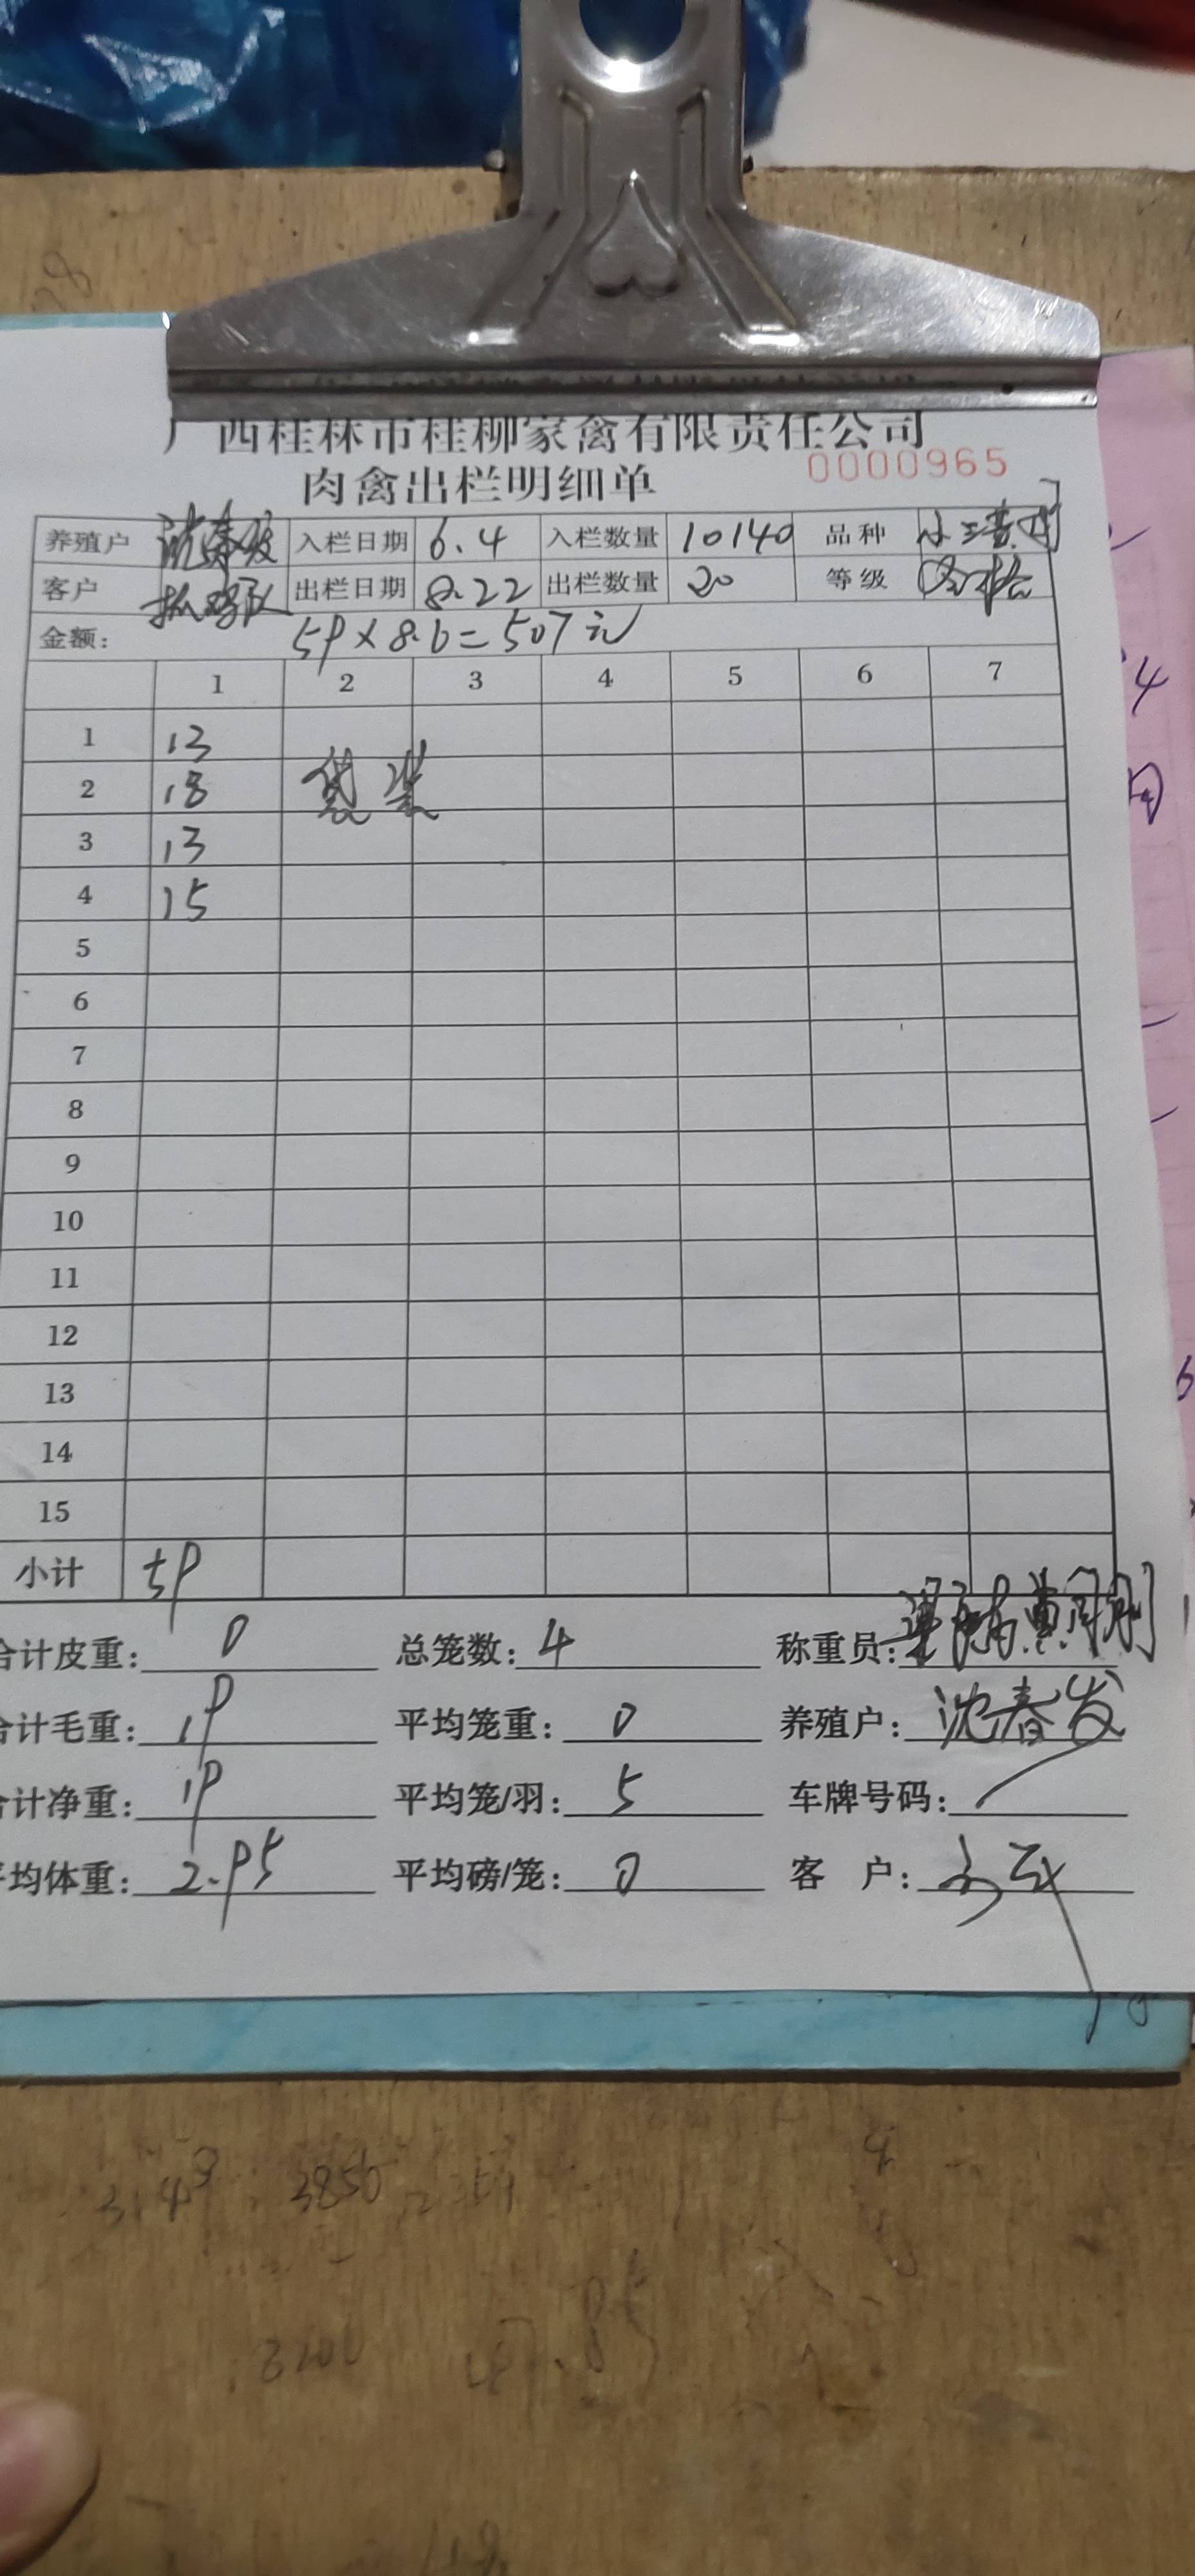 广西桂林市桂柳家禽有限责任公司
肉禽出栏明细单 0000965
养殖户 沈春发 入栏日期 6.4 入栏数量 10140 品种
客户 抓鸡队 出栏日期 8.22 出栏数量 20 等级 合格
金额: 59×8.6=507元
1 2 3 4 5 6 7
1 13
2 18 袋装
3 13
4 15
5
6
7
8
9
10
11
12
13
14
15
小计 59
合计皮重: 0 总笼数: 4 称重员:
合计毛重: 19 平均笼重: 0 养殖户: 沈春发
合计净重: 19 平均笼/羽: 5 车牌号码:
平均体重: 2.95 平均磅/笼: 0 客户:
3850